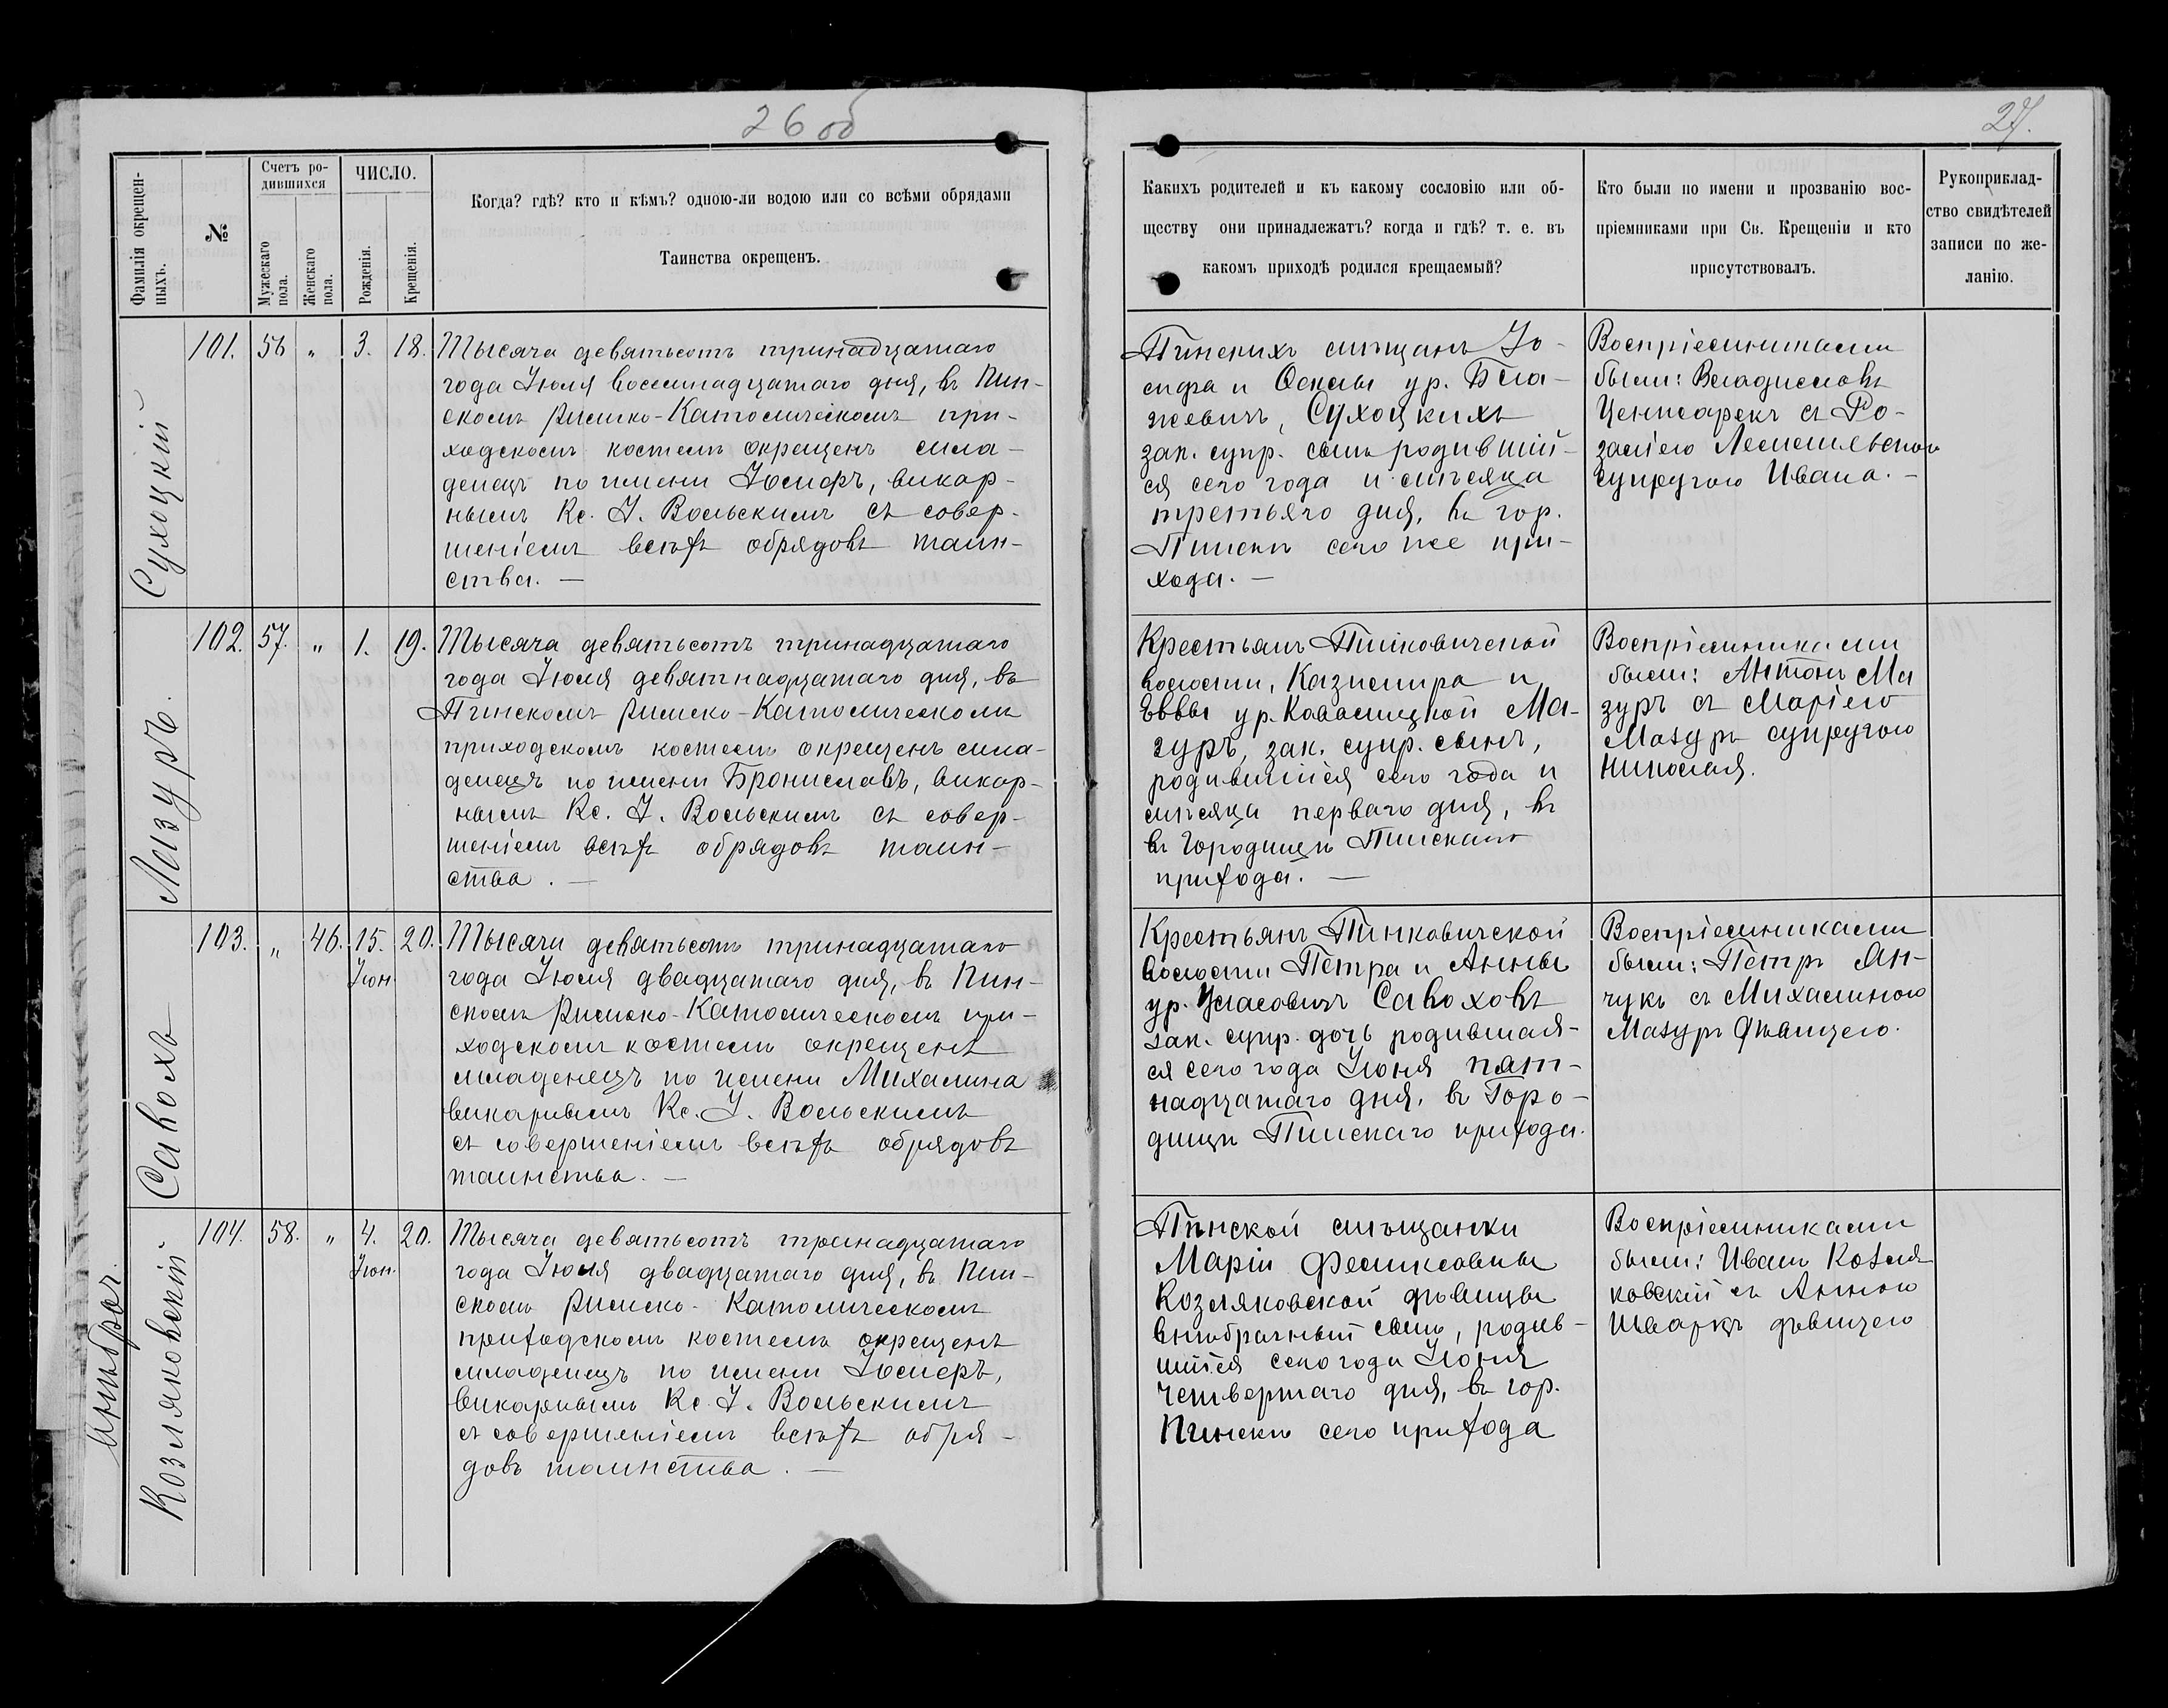 26 об
27.
Фамилія окрещен-
ныхъ.
№
Счетъ ро-
дившихся
Мужескаго
пола.
Женскаго
пола.
ЧИСЛО.
Рожденія.
Крещенія.
Когда? гдѣ? кто и кѣмъ? одною-ли водою или со всѣми обрядами
Таинства окрещенъ.
Какихъ родителей и къ какому сословію или об-
ществу они принадлежатъ? когда и гдѣ? т. е. въ
какомъ приходѣ родился крещаемый?
Кто были по имени и прозванію вос-
пріемниками при Св. Крещеніи и кто
присутствовалъ.
Рукоприклад-
ство свидѣтелей
записи по же-
ланію.
Сухоцкій
101. 56 „ 3. 18.
Тысяча девятьсотъ тринадцатаго
года Іюля восемнадцатаго дня, въ Пин-
скомъ Римско-Католическомъ при-
ходскомъ костелѣ окрещенъ мла-
денецъ по имени Іосифъ, викар-
нымъ Кс. І. Вольскимъ съ совер-
шеніемъ всѣхъ обрядовъ таин-
ства. —
Пинскихъ мѣщанъ Іо-
сифа и ур. Бла-
жевичъ, Сухоцкихъ
зак. супр. сынъ родившій-
ся сего года и мѣсяца
третьяго дня, въ гор.
Пинскѣ сего же при-
хода. —
Воспріемниками
были: Владиславъ
съ Ро-
заліею
супругою Ивана. —
Мазуръ.
102. 57. „ 1. 19.
Тысяча девятьсотъ тринадцатаго
года Іюля девятнадцатаго дня, въ
Пинскомъ Римско-Католическомъ
приходскомъ костелѣ окрещенъ мла-
денецъ по имени Брониславъ, викар-
нымъ Кс. І. Вольскимъ съ совер-
шеніемъ всѣхъ обрядовъ таин-
ства. —
Крестьянъ Пинковичской
волости, Казимира и
Еввы ур. Ковалицкой Ма-
зуръ, зак. супр. сынъ,
родившійся сего года и
мѣсяца перваго дня, въ
въ Городищѣ Пинскаго
прихода. —
Воспріемниками
были: Антонъ Ма
зуръ съ Маріею
Мазуръ супругою
Николая.
Савохъ
103. „ 46. 15. 20.
Іюн.
Тысяча девятьсотъ тринадцатаго
года Іюля двадцатаго дня, въ Пин-
скомъ Римско-Католическомъ при-
ходскомъ костелѣ окрещенъ
младенецъ по имени Михалина
викарнымъ Кс. І. Вольскимъ
съ совершеніемъ всѣхъ обрядовъ
таинства. —
Крестьянъ Пинковичской
волости Петра и Анны
ур. Уласовичъ Савоховъ
зак. супр. дочь родившая-
ся сего года Іюня пят-
надцатаго дня, въ Горо-
дищѣ Пинскаго прихода.
Воспріемниками
были: Петръ Ян-
чукъ съ Михалиною
Мазуръ дѣвицею.
Внѣбрач.
Козляковскій
104. 58. „ 4. 20.
Іюн.
Тысяча девятьсотъ тринадцатаго
года Іюля двадцатаго дня, въ Пин-
скомъ Римско-Католическомъ
приходскомъ костелѣ окрещенъ
младенецъ по имени Іосифъ,
викарнымъ Кс. І. Вольскимъ
съ совершеніемъ всѣхъ обря-
довъ таинства. —
Пинской мѣщанки
Маріи Феликсовны
Козляковской дѣвицы
внѣбрачный сынъ, родив-
шійся сего года Іюня
четвертаго дня, въ гор.
Пинскѣ сего прихода
Воспріемниками
были: Иванъ Козля
ковскій съ Анною
Шварцъ дѣвицею